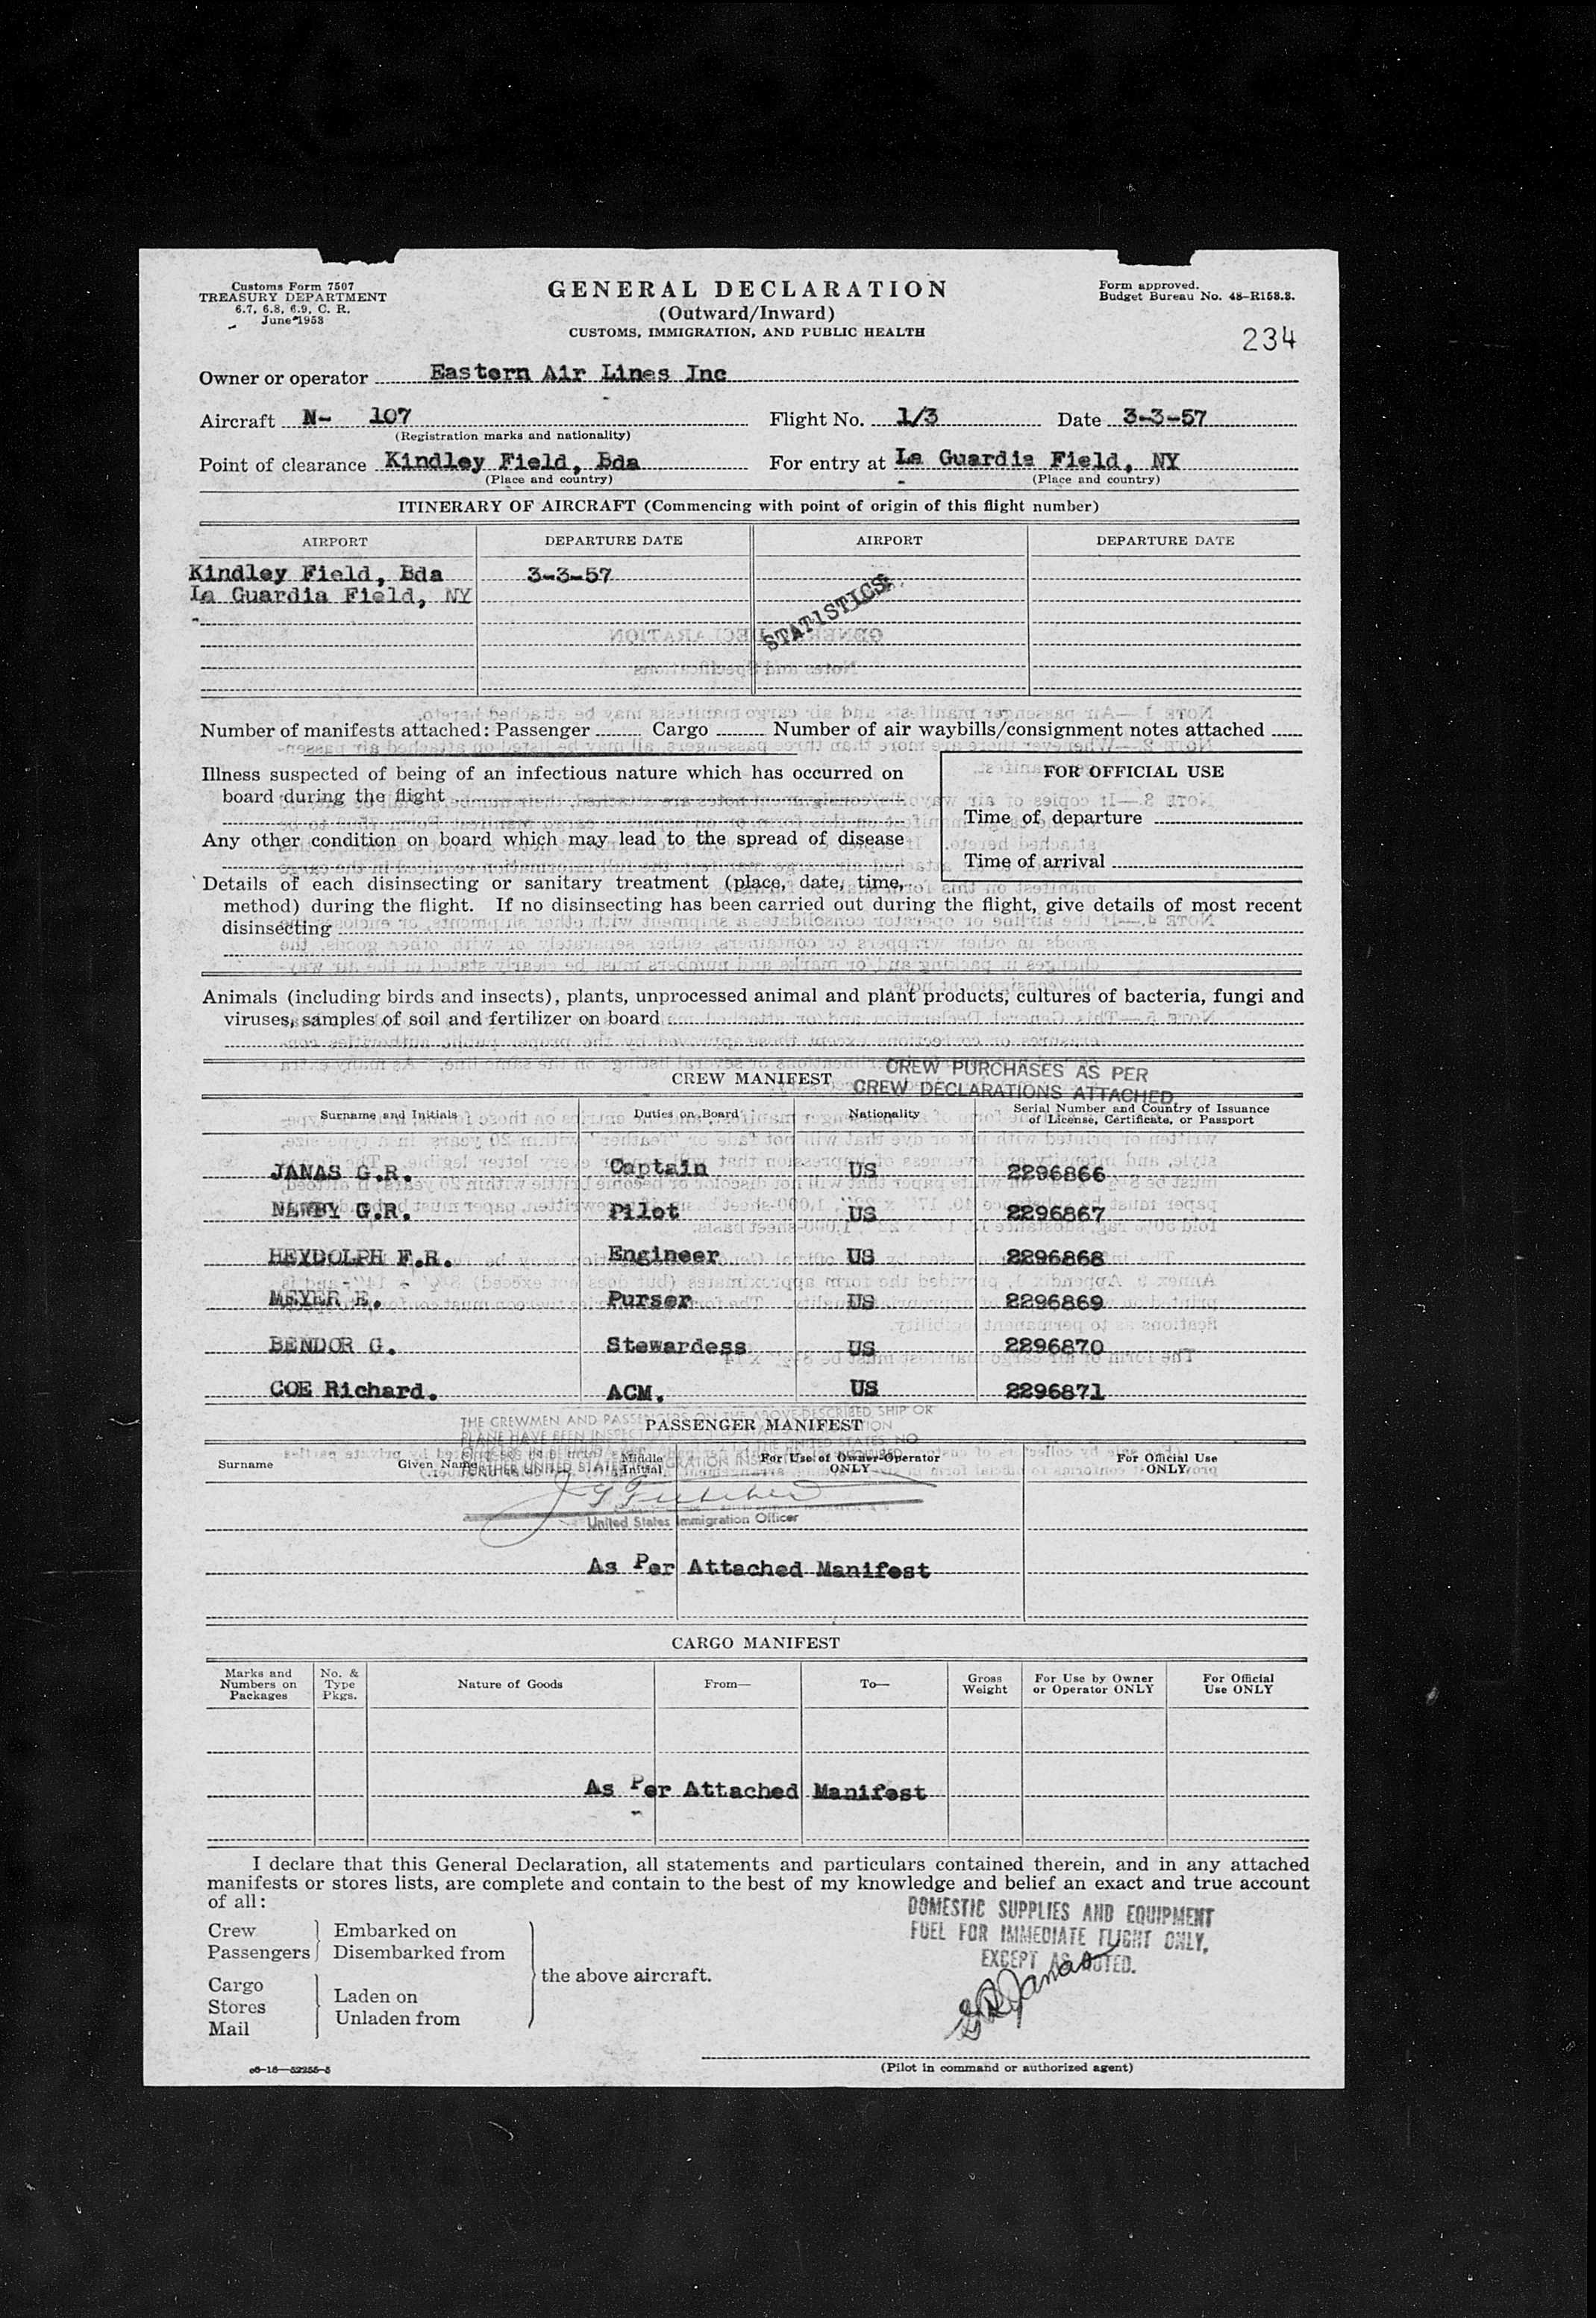 Customs Form 7507
TREASURY DEPARTMENT
6.7, 6.8, 6.9, C. R.
June 1953
GENERAL DECLARATION
(Outward/Inward)
CUSTOMS, IMMIGRATION, AND PUBLIC HEALTH
Form approved.
Budget Bureau No. 48-R158.3.
234
Owner or operator Eastern Air Lines Inc
Aircraft N- 107 Flight No. 1/3 Date 3-3-57
(Registration marks and nationality)
Point of clearance Kindley Field, Bda For entry at La Guardia Field, NY
(Place and country) (Place and country)
ITINERARY OF AIRCRAFT (Commencing with point of origin of this flight number)
AIRPORT DEPARTURE DATE AIRPORT DEPARTURE DATE
Kindley Field, Bda 3-3-57
La Guardia Field, NY
STATISTICS
Number of manifests attached: Passenger Cargo Number of air waybills/consignment notes attached
Illness suspected of being of an infectious nature which has occurred on
board during the flight
Any other condition on board which may lead to the spread of disease
FOR OFFICIAL USE
Time of departure
Time of arrival
Details of each disinsecting or sanitary treatment (place, date, time,
method) during the flight. If no disinsecting has been carried out during the flight, give details of most recent
disinsecting
Animals (including birds and insects), plants, unprocessed animal and plant products, cultures of bacteria, fungi and
viruses, samples of soil and fertilizer on board
CREW MANIFEST
CREW PURCHASES AS PER
CREW DECLARATIONS ATTACHED
Surname and Initials Duties on Board Nationality Serial Number and Country of Issuance
of License, Certificate, or Passport
JANAS G.R. Captain US 2296866
NEWBY G.R. Pilot US 2296867
HEYDOLPH F.R. Engineer US 2296868
MEYER E. Purser US 2296869
BENDOR G. Stewardess US 2296870
COE Richard. ACM. US 2296871
THE CREWMEN AND PASSENGERS ON THE ABOVE DESCRIBED SHIP OR
PLANE HAVE BEEN INSPECTED
PASSENGER MANIFEST
Surname Given Name Middle Initial For Use of Owner-Operator ONLY For Official Use ONLY
United States Immigration Officer
As Per Attached Manifest
CARGO MANIFEST
Marks and Numbers on Packages No. & Type Pkgs. Nature of Goods From— To— Gross Weight For Use by Owner or Operator ONLY For Official Use ONLY
As Per Attached Manifest
I declare that this General Declaration, all statements and particulars contained therein, and in any attached
manifests or stores lists, are complete and contain to the best of my knowledge and belief an exact and true account
of all:
Crew Embarked on
Passengers Disembarked from
the above aircraft.
Cargo
Stores Laden on
Mail Unladen from
DOMESTIC SUPPLIES AND EQUIPMENT
FUEL FOR IMMEDIATE FLIGHT ONLY,
EXCEPT AS NOTED.
G R Janas
(Pilot in command or authorized agent)
c6-16-52255-5